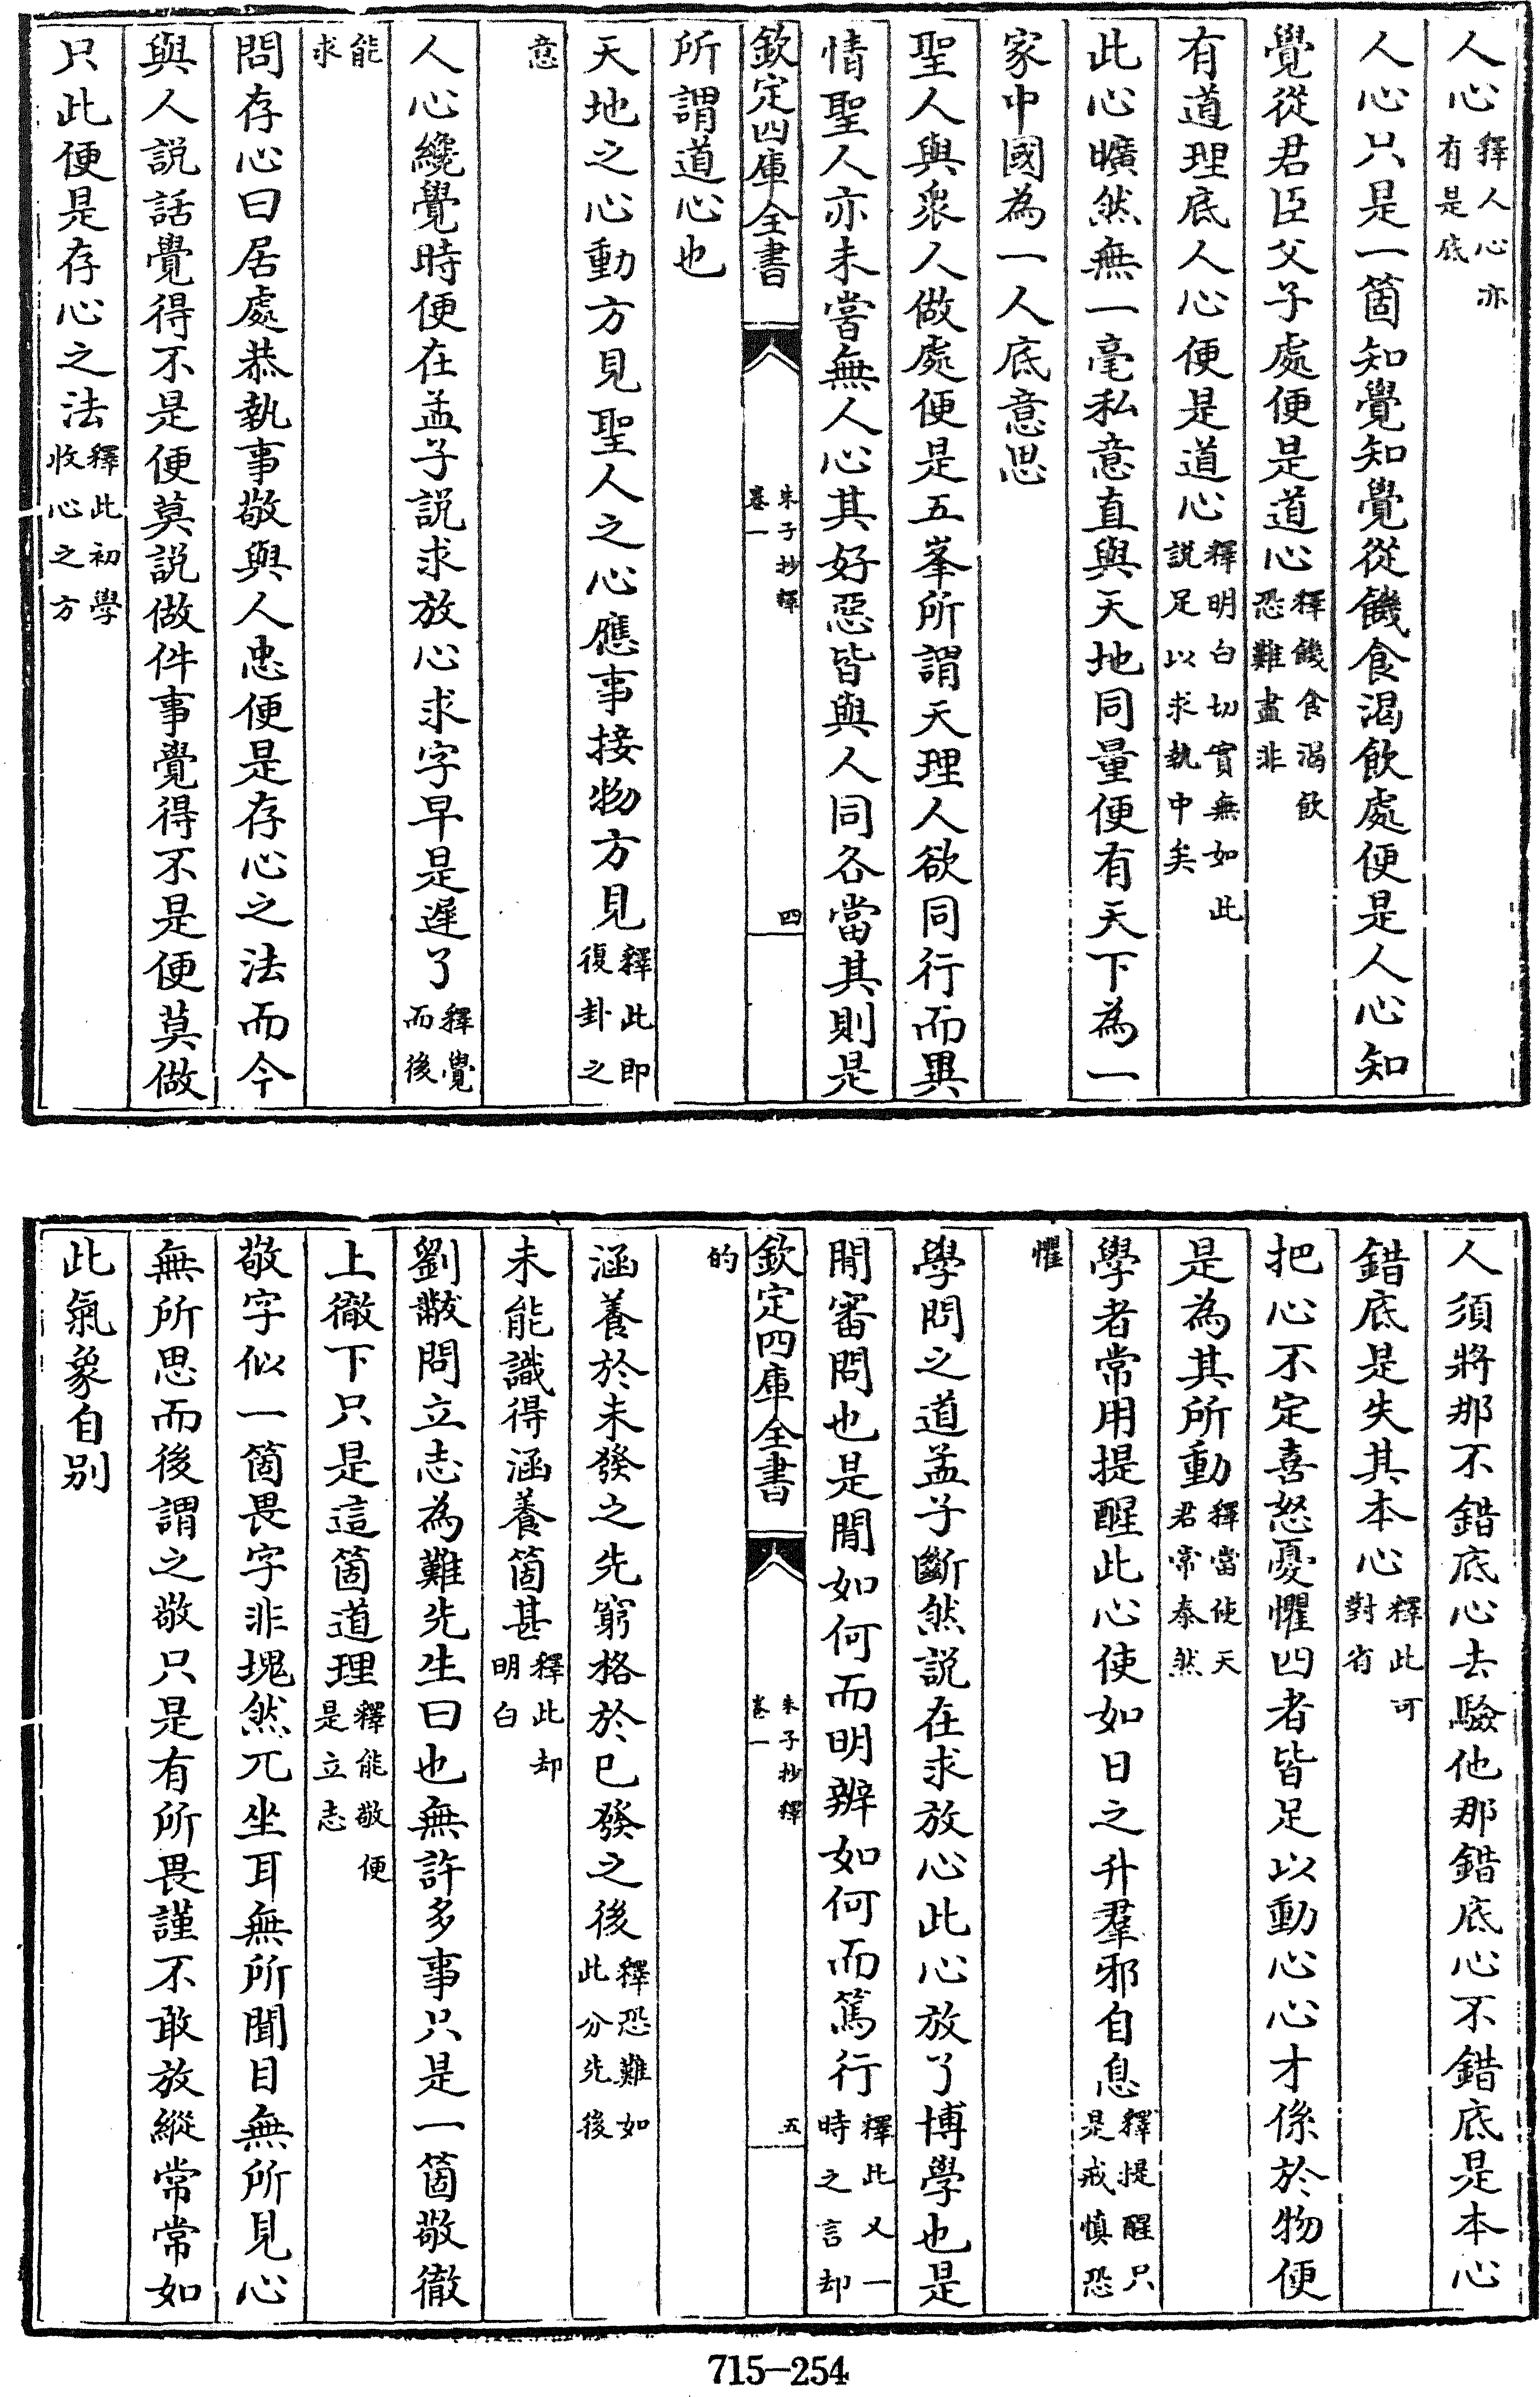 人心釋人心亦有是底
人心只是一箇知覺知覺從饑食渴飲處便是人心知
覺從君臣父子處便是道心釋饑食渴飲恐難盡非
有道理底人心便是道心釋明白切實無如此説足以求執中矣
此心曠然無一毫私意直與天地同量便有天下為一
家中國為一人底意思
聖人與衆人做處便是五峯所謂天理人欲同行而異
情聖人亦未嘗無人心其好惡皆與人同各當其則是
欽定四庫全書 朱子抄釋卷一 四
所謂道心也
天地之心動方見聖人之心應事接物方見釋此即復卦之
意
人心纔覺時便在孟子説求放心求字早是遲了釋覺而後
能求
問存心曰居處恭執事敬與人忠便是存心之法而今
與人説話覺得不是便莫説做件事覺得不是便莫做
只此便是存心之法釋此初學收心之方
人須將那不錯底心去驗他那錯底心不錯底是本心
錯底是失其本心釋此可對省
把心不定喜怒憂懼四者皆足以動心心才係於物便
是為其所動釋當使天君常泰然
學者常用提醒此心使如日之升羣邪自息釋提醒只是戒慎恐
懼
學問之道孟子斷然説在求放心此心放了博學也是
閒審問也是閒如何而明辨如何而篤行釋此又一時之言却
欽定四庫全書 朱子抄釋卷一 五
的
涵養於未發之先窮格於已發之後釋恐難如此分先後
未能識得涵養箇甚釋此却明白
劉黻問立志為難先生曰也無許多事只是一箇敬徹
上徹下只是這箇道理釋能敬便是立志
敬字似一箇畏字非塊然兀坐耳無所聞目無所見心
無所思而後謂之敬只是有所畏謹不敢放縱常常如
此氣象自别
715-254